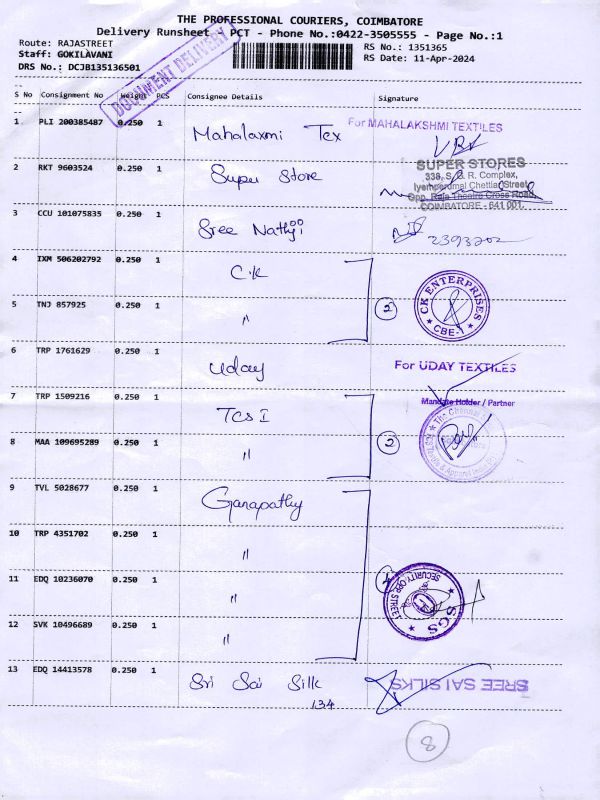 THE PROFESSIONAL COURIERS, COIMBATORE
Delivery Runsheet - PCT - Phone No.:0422-3505555 - Page No.:1
Route: RAJASTREET
RS No.: 1351365
Staff: GOKILAVANI
RS Date: 11-Apr-2024
DRS No.: DCJB135136501
DOCUMENT DELIVERY
S No Consignment No Weight PCS Consignee Details Signature
1 PLI 200385487 0.250 1 Mahalaxmi Tex For MAHALAKSHMI TEXTILES
2 RKT 9603524 0.250 1 Super Store
SUPER STORES
Complex,
Street,
Opp. Raja Theatre Cross Road,
COIMBATORE - 641 001.
3 CCU 101075835 0.250 1 Sree Nathji
4 IXM 506202792 0.250 1 C.K
5 TNJ 857925 0.250 1 " 2 CK ENTERPRISES CBE-1
6 TRP 1761629 0.250 1 Uday For UDAY TEXTILES
7 TRP 1509216 0.250 1 TCS I
Mandate Holder / Partner
8 MAA 109695289 0.250 1 " 2
9 TVL 5028677 0.250 1 Ganapathy
10 TRP 4351702 0.250 1 "
11 EDQ 10236070 0.250 1 " SECURITY OPP STREET SGS
12 SVK 10496689 0.250 1 "
13 EDQ 14413578 0.250 1 Sri Sai Silk SREE SAI SILKS
134
8